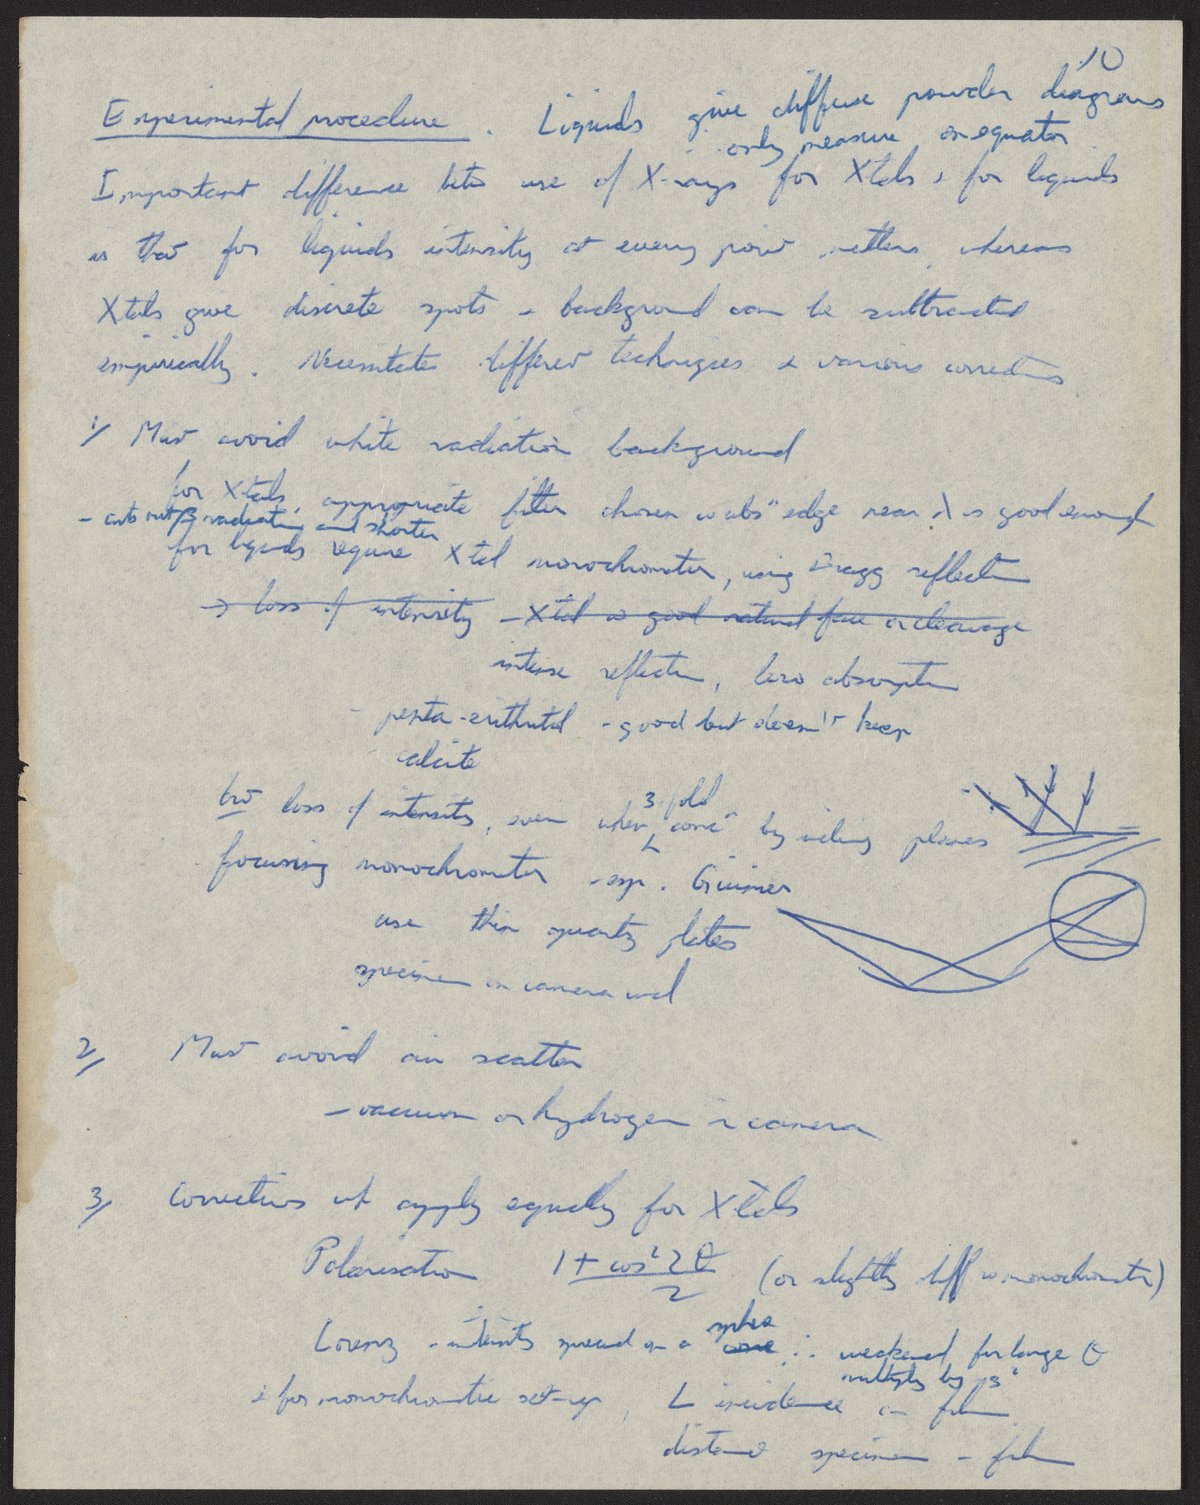 10
Experimental procedure. Liquids give diffuse powder diagrams
only measure on equator
Important difference betn use of X-rays for Xtals & for liquids
is that for liquids intensity at every point matters, whereas
Xtals give discrete spots & background can be subtracted
empirically. Necessitates different techniques & various corrections
1/ Must avoid white radiation background
for Xtals, appropriate filter chosen w absn edge near λ is good enough
- cuts out β radiation and shorter
for liquids require Xtal monochromator, using Bragg reflection
→ loss of intensity - Xtal w good natural face or cleavage
intense reflection, low absorption
- penta-erithritol - good but doesn't keep
calcite
but loss of intensity, even when 3-fold concn by inclining planes
focusing monochromator - esp. Guinier
use thin quartz plates
specimen on camera wall
2/ Must avoid air scatter
- vacuum or hydrogen in camera
3/ Corrections wh apply equally for Xtals
Polarisation 1 + cos² 2θ / 2 (or slightly diff w monochromator)
Lorenz - intensity spread on a cone sphere ∴ weakened for large θ
multiply by
& for monochromatic set-up, L incidence on film
distance specimen - film